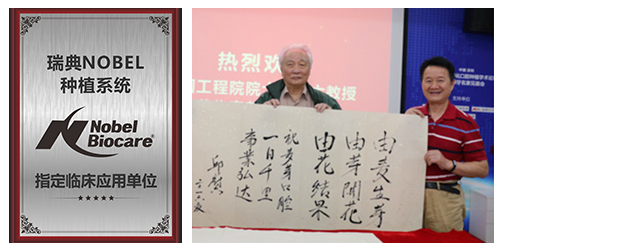 瑞典NOBEL
种植系统
Nobel
Biocare®
指定临床应用单位
热烈欢
工程院院
教授
口腔种植学术论
由麦生芽
由芽開花
由花结果
祝麦芽口腔
一日千里
業弘达